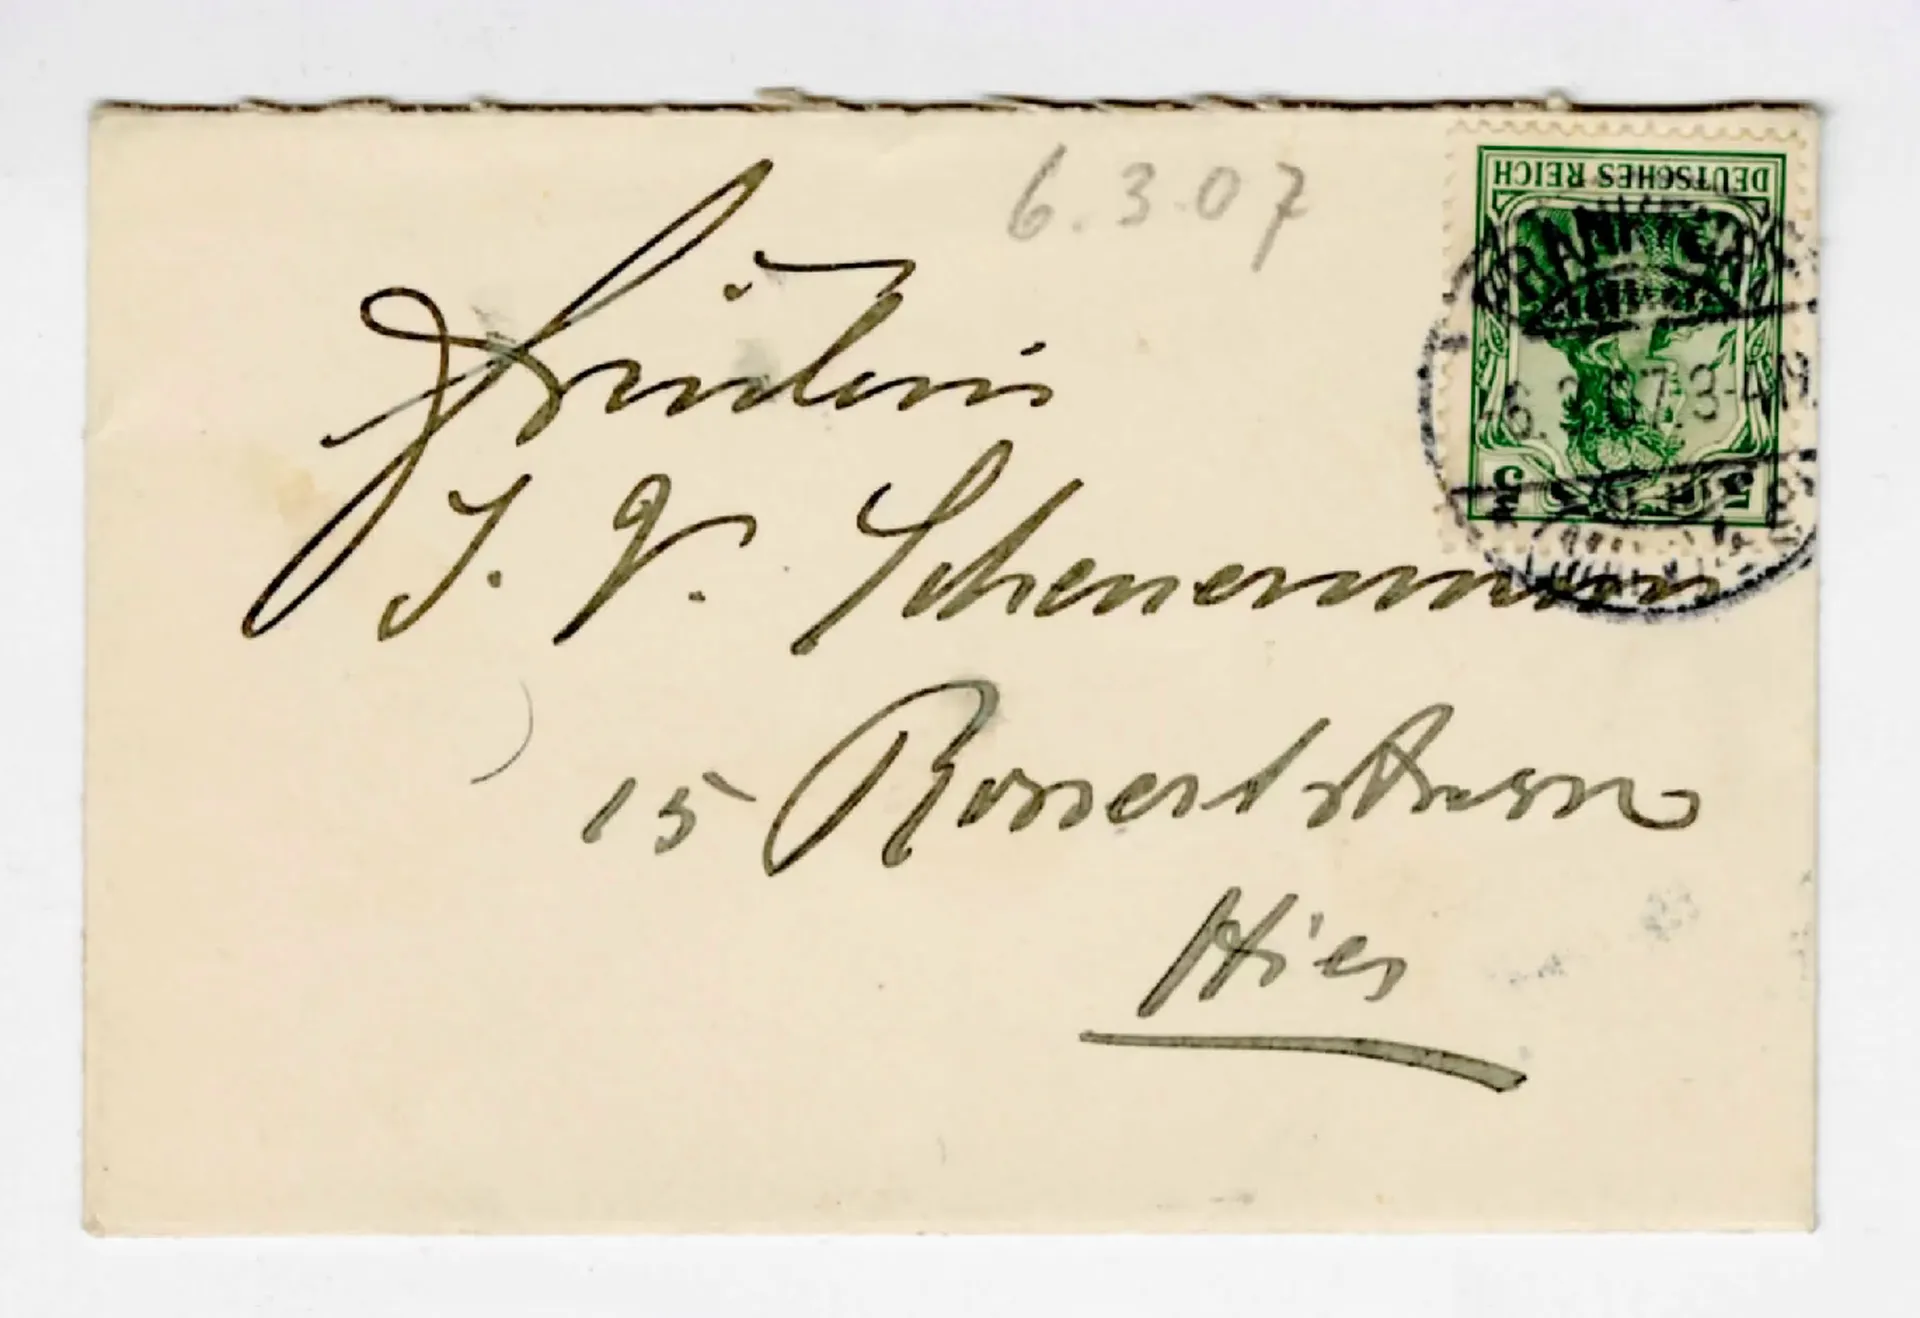 6.3.07
DEUTSCHES REICH
5 5
FRANKFURT
6.3.07.3-4N.
Fräulein
J. V. Scheuermann
15 Rossertstrasse
Hier